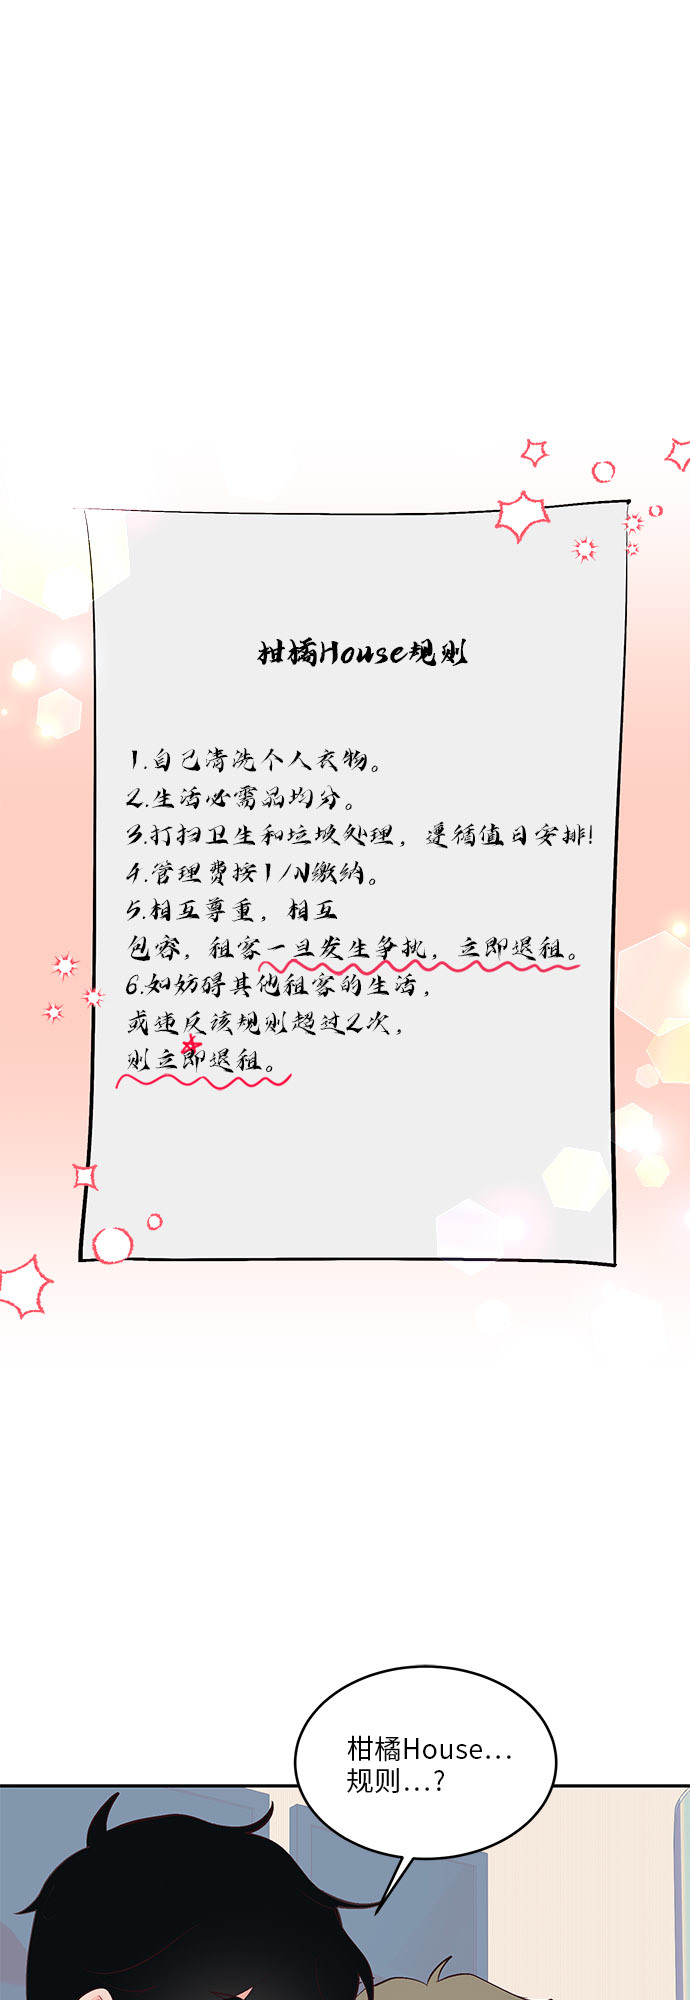 柑橘House规则
1.自己清洗个人衣物。
2.生活必需品均分。
3.打扫卫生和垃圾处理，遵循值日安排!
4.管理费按1/N缴纳。
5.相互尊重，相互
包容，租客一旦发生争执，立即退租。
6.如妨碍其他租客的生活，
或违反该规则超过2次，
则立即退租。
柑橘House...
规则...?